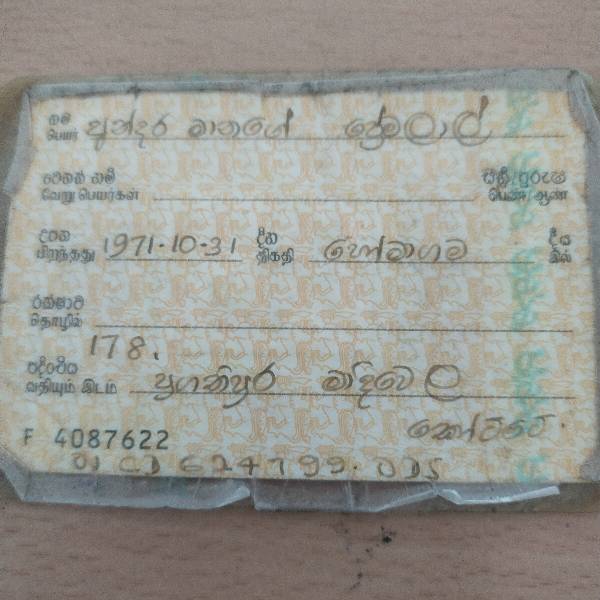 නම සුන්දර මානගේ ප්‍රේමලාල්
பெயர்
වෙනත් නම් ස්ත්‍රී/පුරුෂ
வேறு பெயர்கள் பெண்/ஆண்
උපත 1971-10-31 දින හෝමාගම දීය
பிறந்தது திகதி இல்
රක්ෂාව
தொழில்
178,
පදිංචිය ප්‍රගතිපුර මාදිවෙල
வதியும் இடம்
කෝට්ටේ.
F 4087622
01 CD 624799. ODS